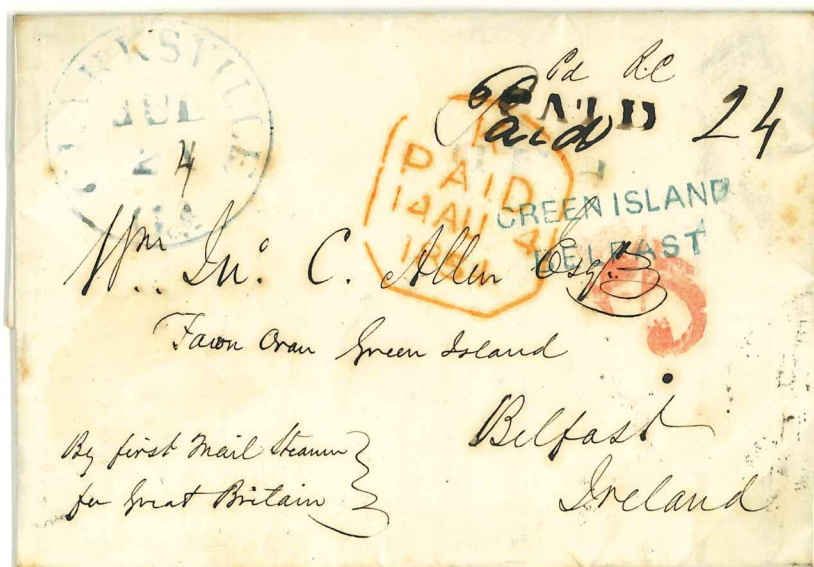 CLARKSVILLE
JUL
24
GA
Pd R.C
PAID
Paid 24
PAID
14 AU 4
185
GREEN ISLAND
BELFAST
Wm. Jno. C. Allen Esqr.
Fawn Oran Green Island
Belfast
Ireland
By first Mail Steamer
for Great Britain